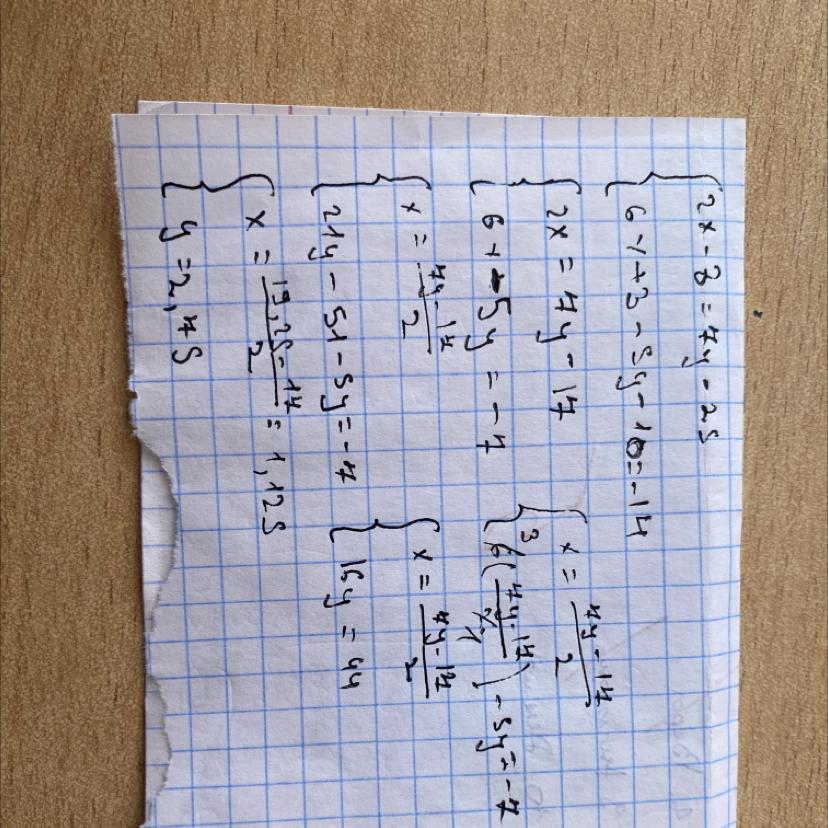 2x - 8 = 7y - 25
6x + 3 - 5y - 10 = -14
2x = 7y - 17
6x - 5y = -7
x = (7y - 17)/2
³6((7y - 17)/2 1) - 5y = -7
x = (7y - 17)/2
21y - 51 - 5y = -7
x = (7y - 17)/2
16y = 44
x = (19,25 - 17)/2 = 1,125
y = 2,75